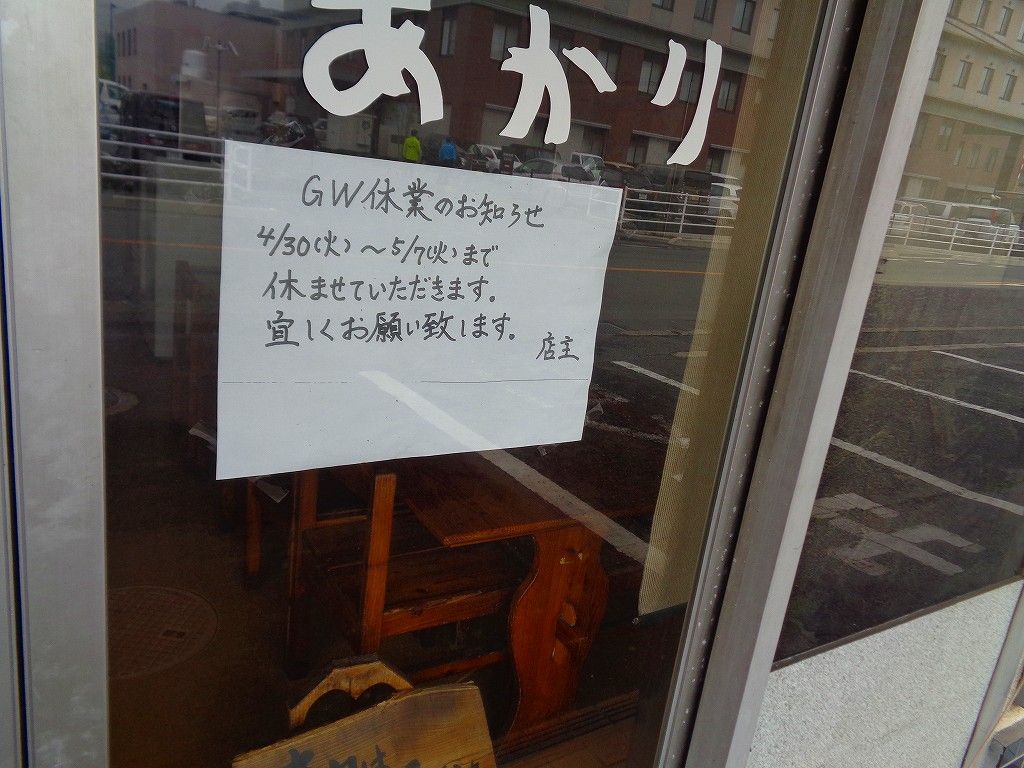 あかり
GW休業のお知らせ
4/30(火)～5/7(火)まで
休ませていただきます。
宜しくお願い致します。
店主